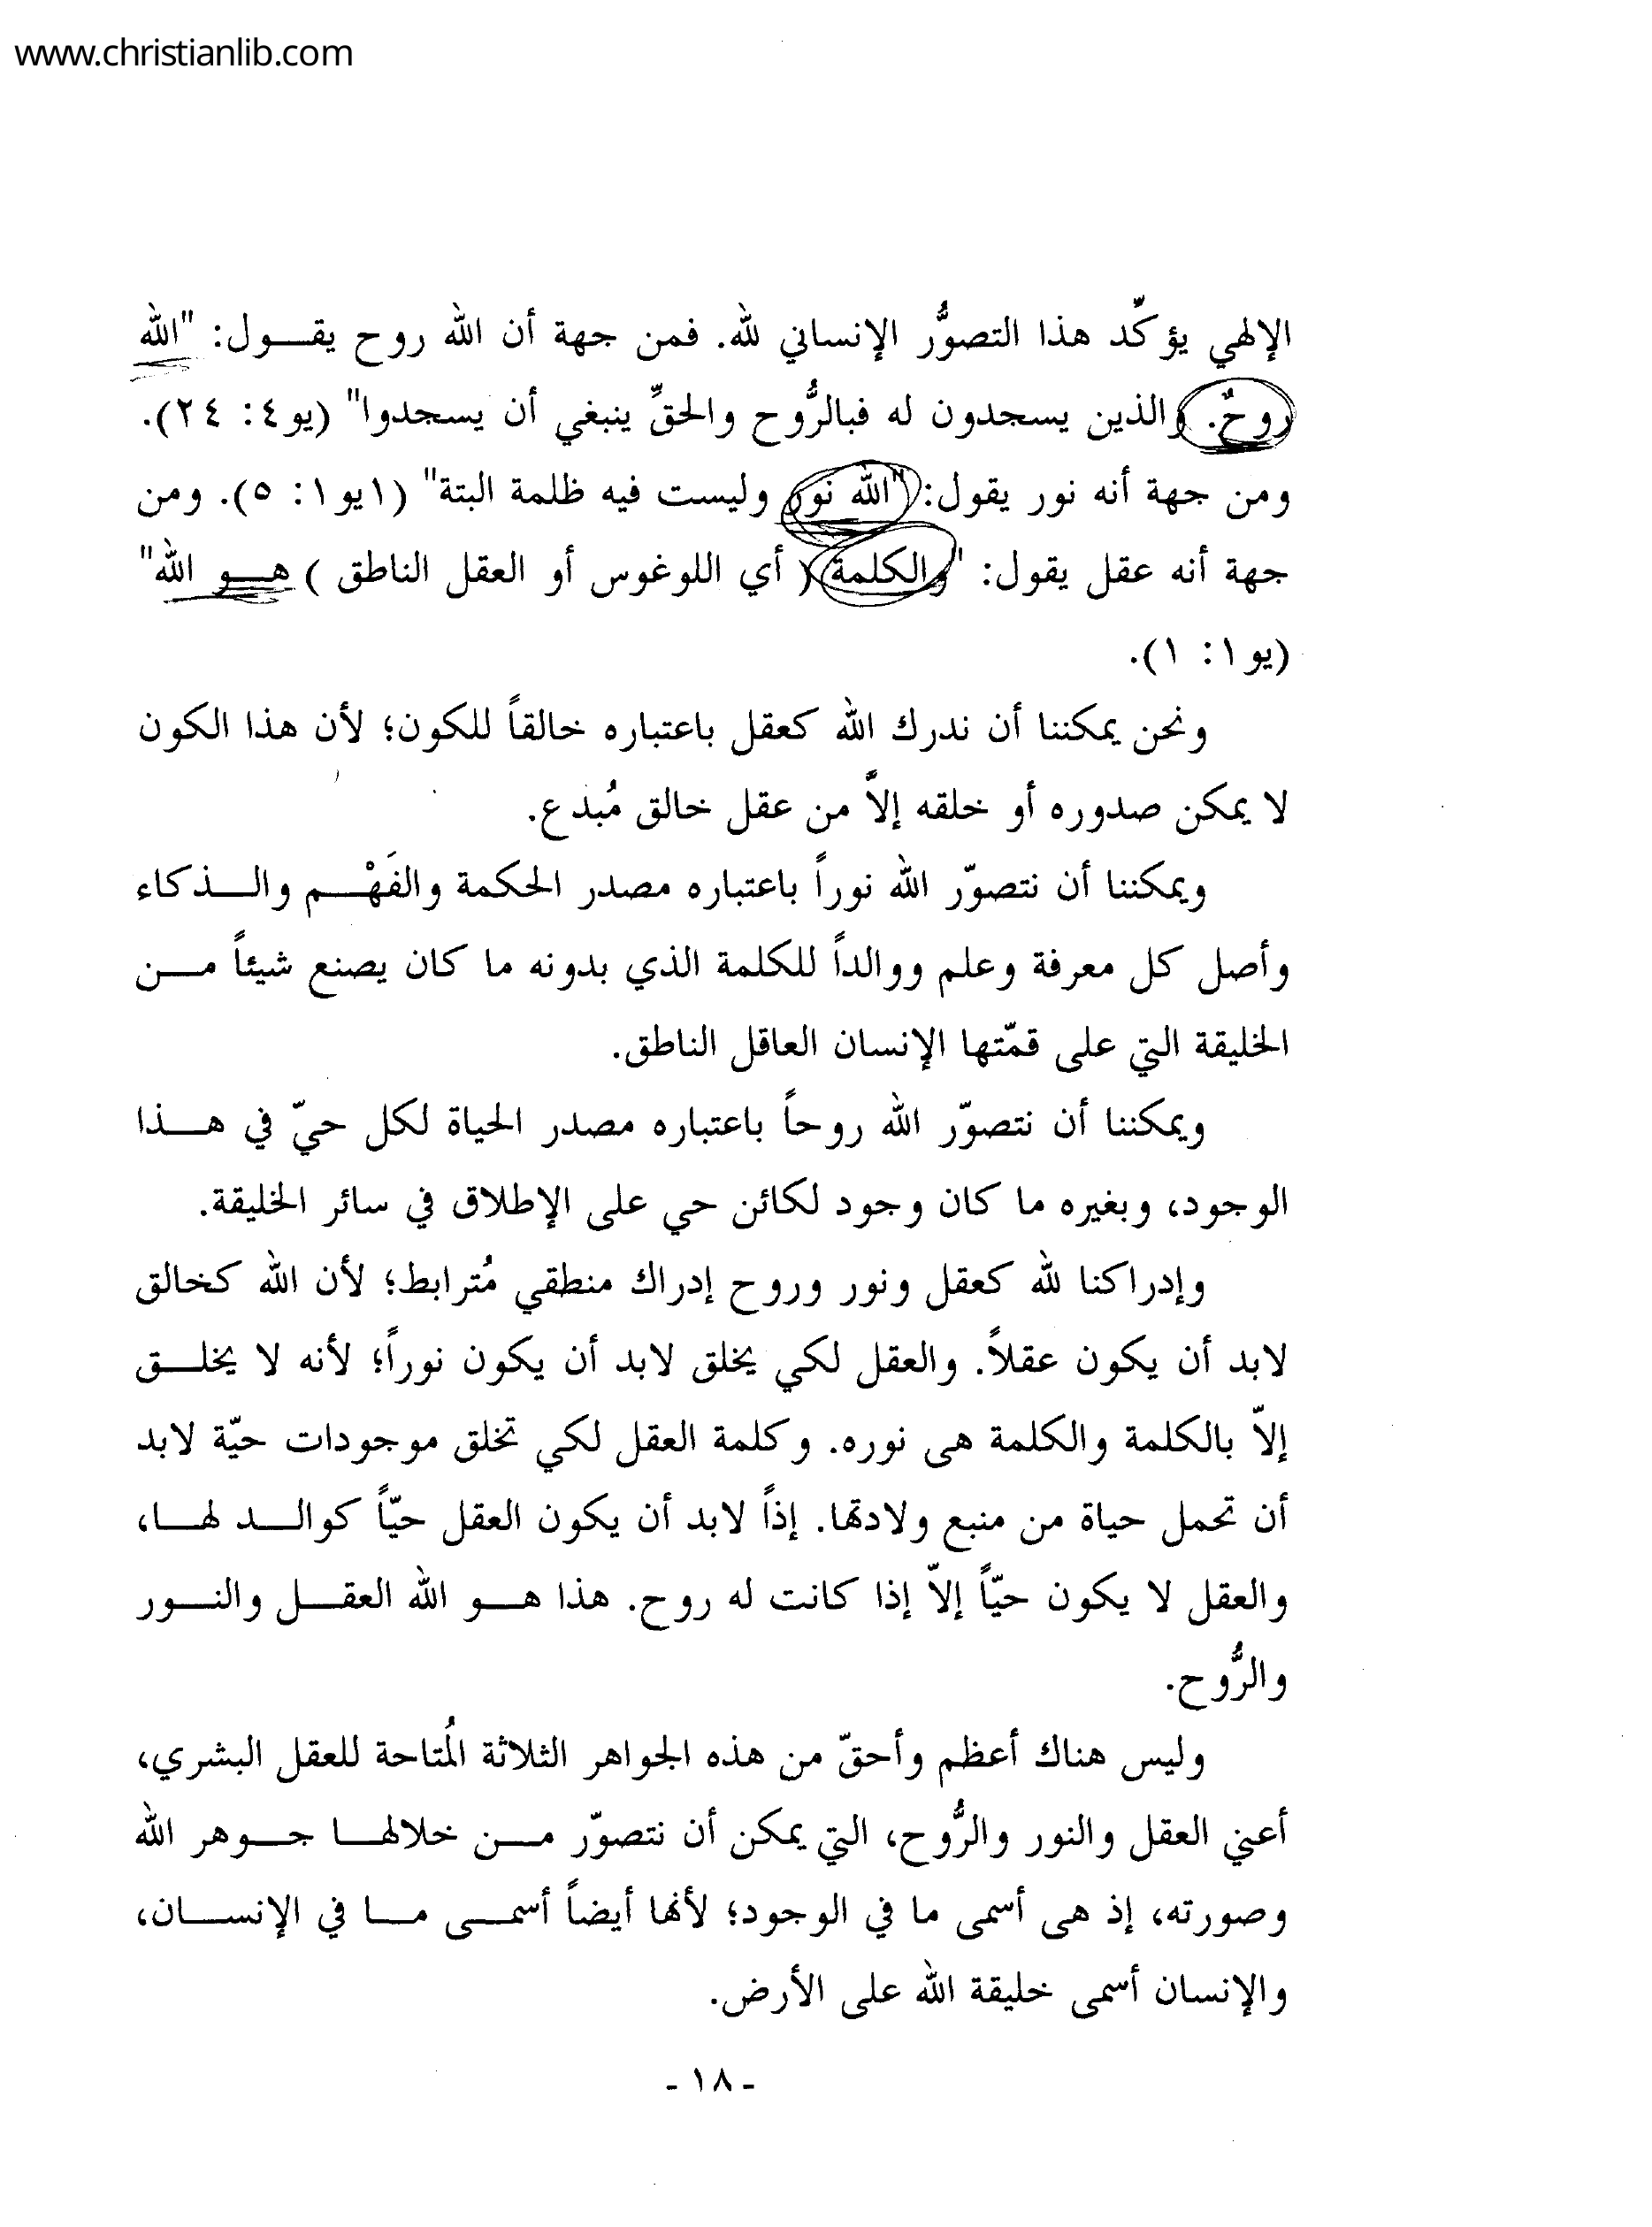 www.christianlib.com
الإلهي يؤكِّد هذا التصوُّر الإنساني لله. فمن جهة أن الله روح يقـــول: "الله
روحٌ. والذين يسجدون له فبالرُّوح والحقِّ ينبغي أن يسجدوا" (يو٤: ٢٤).
ومن جهة أنه نور يقول: "الله نور وليست فيه ظلمة البتة" (١يو١: ٥). ومن
جهة أنه عقل يقول: "والكلمة ( أي اللوغوس أو العقل الناطق ) هـــو الله"
(يو١: ١).
ونحن يمكننا أن ندرك الله كعقل باعتباره خالقاً للكون؛ لأن هذا الكون
لا يمكن صدوره أو خلقه إلاَّ من عقل خالق مُبدع.
ويمكننا أن نتصوّر الله نوراً باعتباره مصدر الحكمة والفَهْـــم والـــذكاء
وأصل كل معرفة وعلم ووالداً للكلمة الذي بدونه ما كان يصنع شيئاً مـــن
الخليقة التي على قمّتها الإنسان العاقل الناطق.
ويمكننا أن نتصوّر الله روحاً باعتباره مصدر الحياة لكل حيّ في هـــذا
الوجود، وبغيره ما كان وجود لكائن حي على الإطلاق في سائر الخليقة.
وإدراكنا لله كعقل ونور وروح إدراك منطقي مُترابط؛ لأن الله كخالق
لابد أن يكون عقلاً. والعقل لكي يخلق لابد أن يكون نوراً؛ لأنه لا يخلـــق
إلاّ بالكلمة والكلمة هى نوره. وكلمة العقل لكي تخلق موجودات حيّة لابد
أن تحمل حياة من منبع ولادتها. إذاً لابد أن يكون العقل حيّاً كوالـــد لهـــا،
والعقل لا يكون حيّاً إلاّ إذا كانت له روح. هذا هـــو الله العقـــل والنـــور
والرُّوح.
وليس هناك أعظم وأحقّ من هذه الجواهر الثلاثة المُتاحة للعقل البشري،
أعني العقل والنور والرُّوح، التي يمكن أن نتصوّر مـــن خلالهـــا جـــوهر الله
وصورته، إذ هى أسمى ما في الوجود؛ لأنها أيضاً أسمـــى مـــا في الإنســـان،
والإنسان أسمى خليقة الله على الأرض.
- ١٨ -